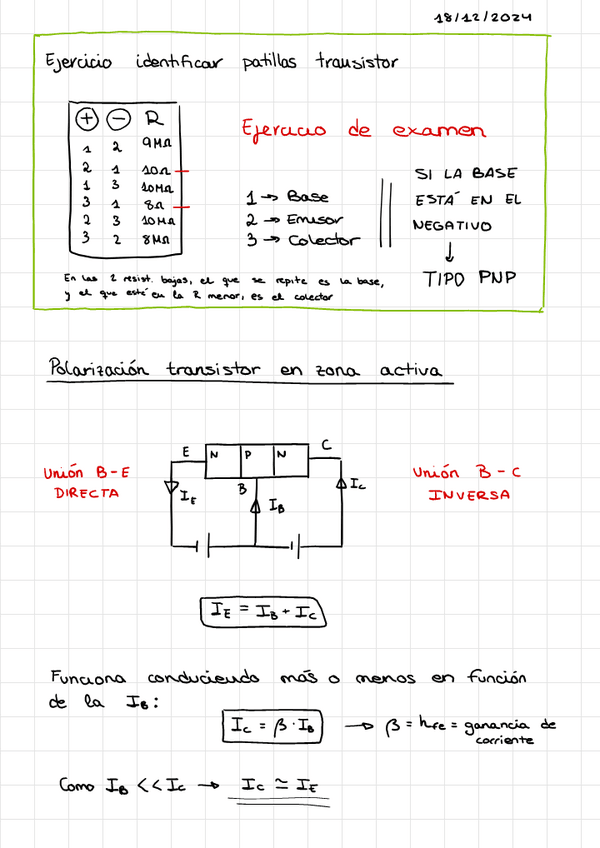 18/12/2024
Ejercicio identificar patillas transistor
+ - R
1 2 9MΩ
2 1 10Ω
1 3 10MΩ
3 1 8Ω
2 3 10MΩ
3 2 8MΩ
Ejercicio de examen
1 → Base
2 → Emisor
3 → Colector
SI LA BASE
ESTÁ EN EL
NEGATIVO
↓
TIPO PNP
En las 2 resist. bajas, el que se repite es la base,
y el que esté en la R menor, es el colector
Polarización transistor en zona activa
Unión B-E
DIRECTA
E N P N C
B
I_E
I_B
I_C
Unión B-C
INVERSA
I_E = I_B + I_C
Funciona conduciendo más o menos en función
de la I_B:
I_C = β · I_B → β = hfe = ganancia de
corriente
Como I_B << I_C → I_C ≃ I_E